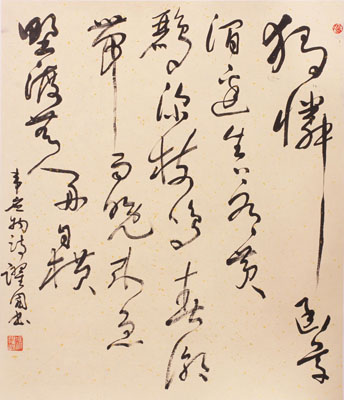 獨憐幽草
澗邊生上有黃
鸝深樹鳴春潮
帶雨晚來急
野渡無人舟自橫
韋應物詩 國書